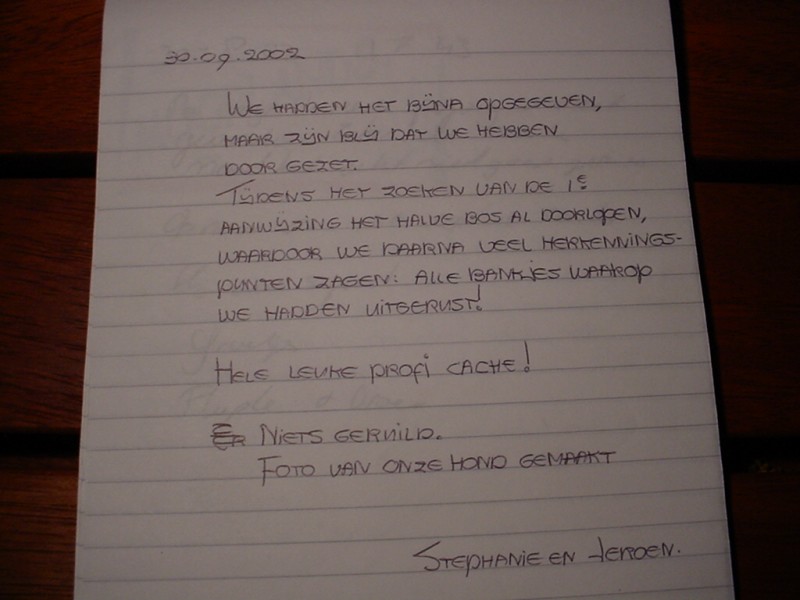 30.09.2002
WE HADDEN HET BIJNA OPGEGEVEN,
MAAR ZIJN BLIJ DAT WE HEBBEN
DOOR GEZET.
TIJDENS HET ZOEKEN VAN DE 1E
AANWIJZING HET HALVE BOS AL DOORLOPEN,
WAARDOOR WE DAARNA VEEL HERKENNINGS-
PUNTEN ZAGEN: ALLE BANKJES WAAROP
WE HADDEN UITGERUST!
HELE LEUKE PROFI CACHE!
ER NIETS GERUILD.
FOTO VAN ONZE HOND GEMAAKT
STEPHANIE EN JEROEN.